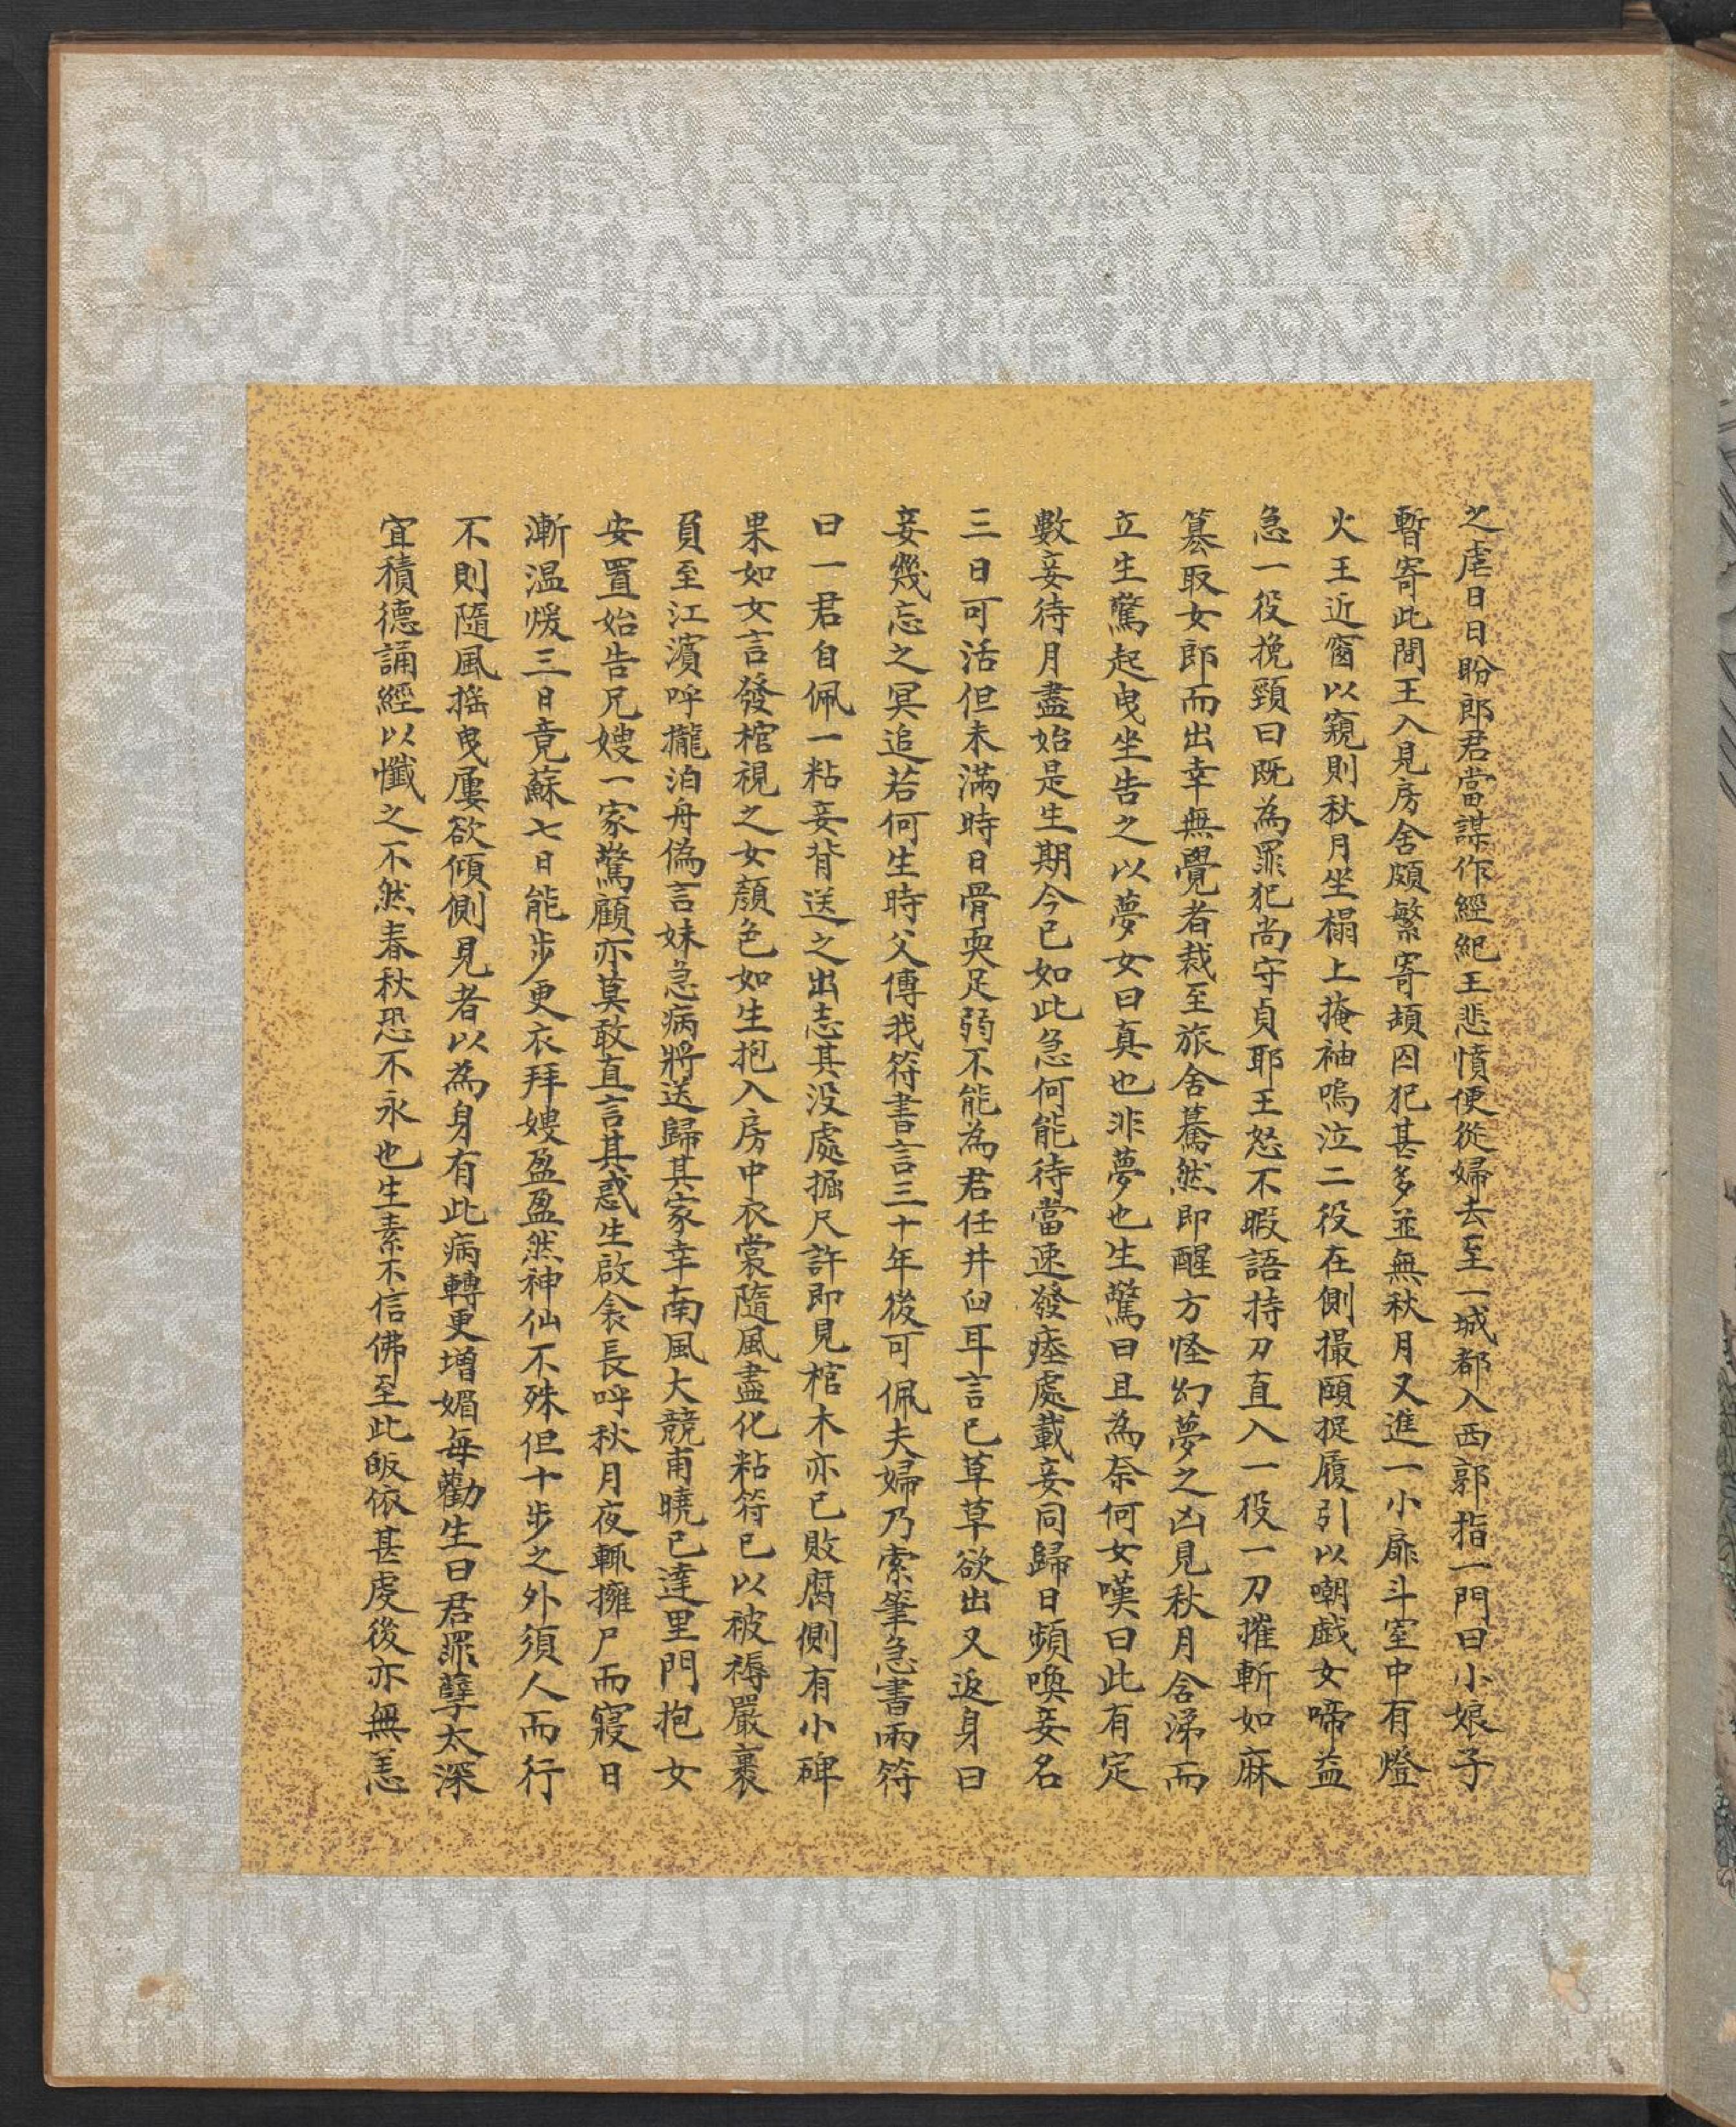 之虐日日盼郎君當謀作經紀王悲憤便從婦去至一城都入西郭指一門曰小娘子
暫寄此間王入見房舍頗繁寄頓囚犯甚多並無秋月又進一小扉斗室中有燈
火王近窗以窺則秋月坐榻上掩袖嗚泣二役在側撮頤捉履引以嘲戲女啼益
急一役挽頸曰既為罪犯尚守貞耶王怒不暇語持刀直入一役一刀摧斬如麻
篡取女郎而出幸無覺者裁至旅舍驀然即醒方怪幻夢之凶見秋月含涕而
立生驚起曳坐告之以夢女曰真也非夢也生驚曰且為奈何女嘆曰此有定
數妾待月盡始是生期今已如此急何能待當速發瘞處載妾同歸日頻喚妾名
三日可活但未滿時日骨耎足弱不能為君任井臼耳言已草草欲出又返身曰
妾幾忘之冥追若何生時父傳我符書言三十年後可佩夫婦乃索筆急書兩符
曰一君自佩一粘妾背送之出志其没處掘尺許即見棺木亦已敗腐側有小碑
果如女言發棺視之女顏色如生抱入房中衣裳隨風盡化粘符已以被褥嚴裹
負至江濱呼攏泊舟偽言妹急病將送歸其家幸南風大競甫曉已達里門抱女
安置始告兄嫂一家驚顧亦莫敢直言其惑生啟衾長呼秋月夜輒擁尸而寢日
漸温煖三日竟蘇七日能步更衣拜嫂盈盈然神仙不殊但十步之外須人而行
不則隨風搖曳屢欲傾側見者以為身有此病轉更增媚每勸生曰君罪孽太深
宜積德誦經以懺之不然春秋恐不永也生素不信佛至此皈依甚虔後亦無恙